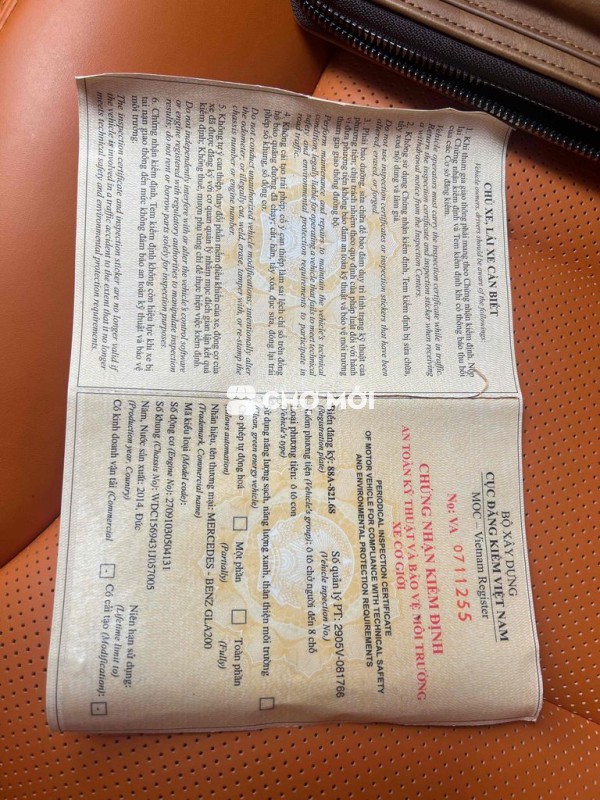 CHỦ XE, LÁI XE CẦN BIẾT
Vehicle owners, drivers should be aware of the following:
1. Khi tham gia giao thông phải mang theo Chứng nhận kiểm định. Nộp
lại Chứng nhận kiểm định và Tem kiểm định khi có thông báo thu hồi
của các Cơ sở đăng kiểm.
Vehicle operators must carry the inspection certificate while in traffic.
Return the inspection certificate and inspection sticker when receiving
a withdrawal notice from the Inspection Centers.
2. Không sử dụng Chứng nhận kiểm định, Tem kiểm định bị sửa chữa,
tẩy xoá nội dung và làm giả.
Do not use inspection certificates or inspection stickers that have been
altered, erased, or forged.
3. Phải bảo dưỡng, sửa chữa để bảo đảm duy trì tình trạng kỹ thuật của
phương tiện; chịu trách nhiệm theo quy định của pháp luật đối với hành
vi đưa phương tiện không bảo đảm an toàn kỹ thuật và bảo vệ môi trường
tham gia giao thông đường bộ.
Perform maintenance and repairs to maintain the vehicle's technical
condition; legally liable for operating a vehicle that fails to meet technical
safety and environmental protection requirements to participate in
road traffic.
4. Không cải tạo trái phép; cố ý can thiệp làm sai lệch chỉ số trên đồng
hồ báo quãng đường đã chạy; cắt, hàn, tẩy xóa, đục sửa, đóng lại trái
phép số khung, số động cơ.
Do not conduct unauthorized vehicle modifications; intentionally alter
the odometer; or illegally cut, weld, erase, tamper with, or re-stamp the
chassis number or engine number.
5. Không tự ý can thiệp, thay đổi phần mềm điều khiển của xe, động cơ của
xe đã được đăng ký với cơ quan quản lý nhằm mục đích gian lận kết quả
kiểm định; Không thuê, mượn phụ tùng chỉ để thực hiện việc kiểm định.
Do not independently interfere with or alter the vehicle's control software
or engine registered with regulatory authorities to manipulate inspection
results; do not rent or borrow parts solely for inspection purposes.
6. Chứng nhận kiểm định, Tem kiểm định không còn hiệu lực khi xe bị
tai nạn giao thông đến mức không đảm bảo an toàn kỹ thuật và bảo vệ
môi trường.
The inspection certificate and inspection sticker are no longer valid if
the vehicle is involved in a traffic accident to the extent that it no longer
meets technical safety and environmental protection requirements.
CHỢ MỚI
BỘ XÂY DỰNG
CỤC ĐĂNG KIỂM VIỆT NAM
MOC – Vietnam Register
No: VA 0711255
CHỨNG NHẬN KIỂM ĐỊNH
AN TOÀN KỸ THUẬT VÀ BẢO VỆ MÔI TRƯỜNG
XE CƠ GIỚI
PERIODICAL INSPECTION CERTIFICATE
OF MOTOR VEHICLE FOR COMPLIANCE WITH TECHNICAL SAFETY
AND ENVIRONMENTAL PROTECTION REQUIREMENTS
Biển đăng ký: 88A-821.68 Số quản lý PT: 2905V-081766
(Registration plate) (Vehicle inpection No.)
Nhóm phương tiện (Vehicle's group): ô tô chở người đến 8 chỗ
Loại phương tiện: ô tô con
(Vehicle's type)
Sử dụng năng lượng sạch, năng lượng xanh, thân thiện môi trường
(Clean, green energy vehicle)
phép tự động hoá Một phần Toàn phần
automation) (Partially) (Fully)
Nhãn hiệu, tên thương mại: MERCEDES - BENZ GLA200
(Trademark, Commercial name)
Mã kiểu loại (Model code):
Số động cơ (Engine No): 27091030504131
Số khung (Chassis No): WDC1569431J057005
Năm, Nước sản xuất: 2014, Đức Niên hạn sử dụng:
(Production year, Country) (Lifetime limit to)
Có kinh doanh vận tải (Commercial Có cải tạo (Modification):